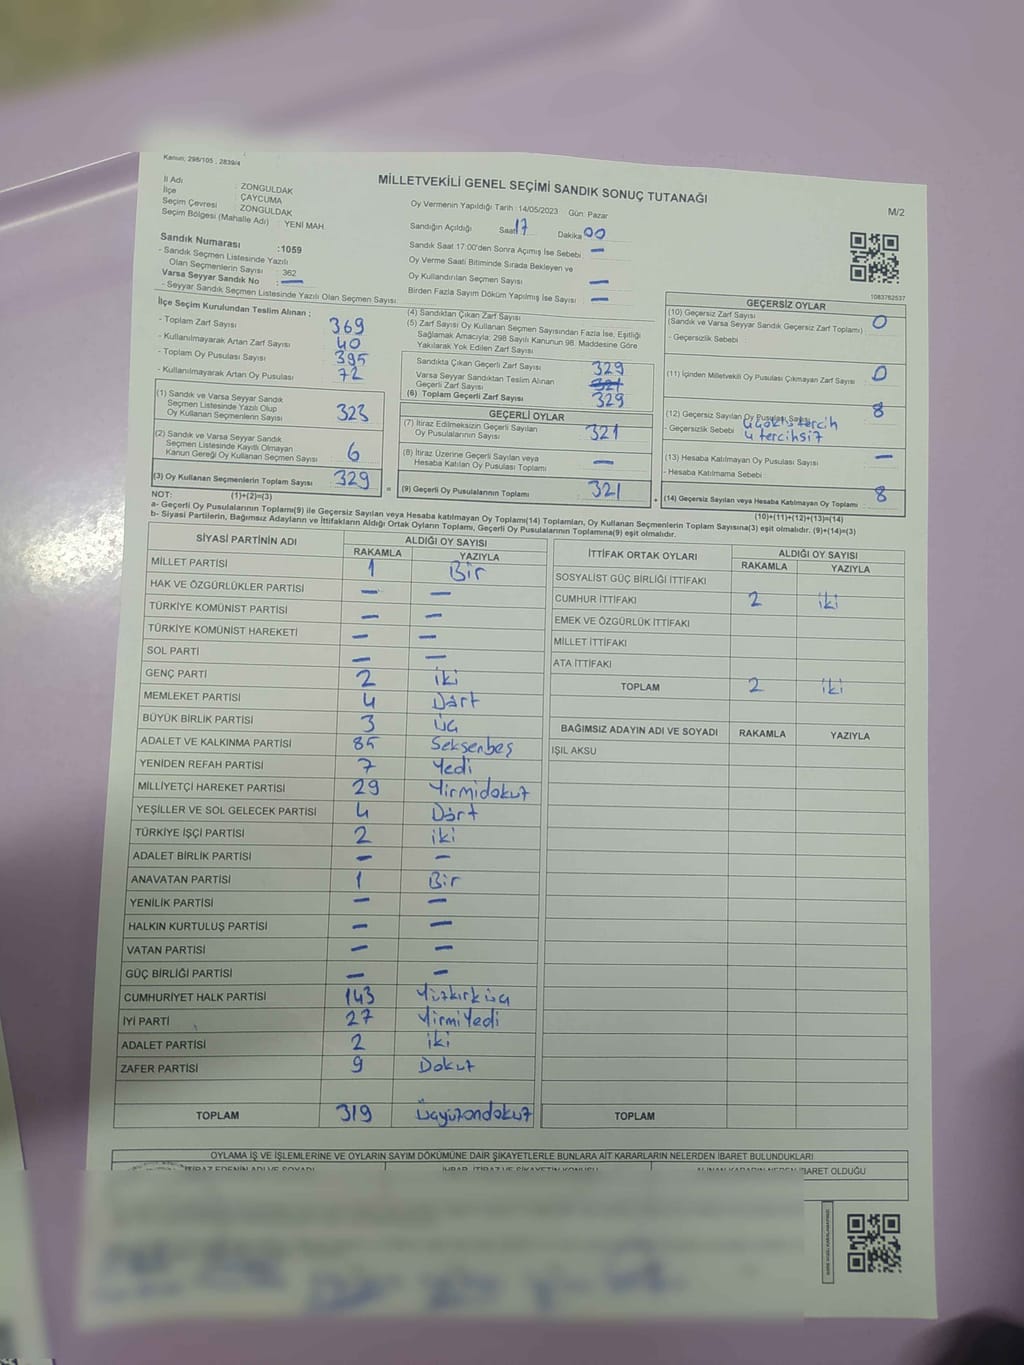 Kanun; 298/105 , 2839/4
MİLLETVEKİLİ GENEL SEÇİMİ SANDIK SONUÇ TUTANAĞI
M/2
İl Adı : ZONGULDAK
İlçe : ÇAYCUMA
Seçim Çevresi : ZONGULDAK
Seçim Bölgesi (Mahalle Adı) : YENİ MAH
Oy Vermenin Yapıldığı Tarih :14/05/2023 Gün: Pazar
Sandığın Açıldığı Saat 17 Dakika 00
Sandık Saat 17:00'den Sonra Açımış İse Sebebi : —
Oy Verme Saati Bitiminde Sırada Bekleyen ve
Oy Kullandırılan Seçmen Sayısı : —
Birden Fazla Sayım Döküm Yapılmış İse Sayısı : —
Sandık Numarası :1059
- Sandık Seçmen Listesinde Yazılı
Olan Seçmenlerin Sayısı : 362
Varsa Seyyar Sandık No : —
- Seyyar Sandık Seçmen Listesinde Yazılı Olan Seçmen Sayısı :
1083762537
İlçe Seçim Kurulundan Teslim Alınan ;
- Toplam Zarf Sayısı 369
- Kullanılmayarak Artan Zarf Sayısı 40
- Toplam Oy Pusulası Sayısı 395
- Kullanılmayarak Artan Oy Pusulası 72
(1) Sandık ve Varsa Seyyar Sandık
Seçmen Listesinde Yazılı Olup
Oy Kullanan Seçmenlerin Sayısı 323
(2) Sandık ve Varsa Seyyar Sandık
Seçmen Listesinde Kayıtlı Olmayan
Kanun Gereği Oy Kullanan Seçmen Sayısı 6
(3) Oy Kullanan Seçmenlerin Toplam Sayısı 329
(1)+(2)=(3)
(4) Sandıktan Çıkan Zarf Sayısı
(5) Zarf Sayısı Oy Kullanan Seçmen Sayısından Fazla İse, Eşitliği
Sağlamak Amacıyla; 298 Sayılı Kanunun 98. Maddesine Göre
Yakılarak Yok Edilen Zarf Sayısı
Sandıkta Çıkan Geçerli Zarf Sayısı 329
Varsa Seyyar Sandıktan Teslim Alınan
Geçerli Zarf Sayısı 321
(6) Toplam Geçerli Zarf Sayısı 329
GEÇERLİ OYLAR
(7) İtiraz Edilmeksizin Geçerli Sayılan
Oy Pusulalarının Sayısı 321
(8) İtiraz Üzerine Geçerli Sayılan veya
Hesaba Katılan Oy Pusulası Toplamı —
(9) Geçerli Oy Pusulalarının Toplamı 321
GEÇERSİZ OYLAR
(10) Geçersiz Zarf Sayısı
(Sandık ve Varsa Seyyar Sandık Geçersiz Zarf Toplamı) : 0
- Geçersizlik Sebebi :
(11) İçinden Milletvekili Oy Pusulası Çıkmayan Zarf Sayısı : 0
(12) Geçersiz Sayılan Oy Pusulası Sayısı 8
- Geçersizlik Sebebi : 4 çoklu tercih
4 tercihsiz
(13) Hesaba Katılmayan Oy Pusulası Sayısı : —
- Hesaba Katılmama Sebebi :
(14) Geçersiz Sayılan veya Hesaba Katılmayan Oy Toplamı 8
(10)+(11)+(12)+(13)=(14)
NOT:
a- Geçerli Oy Pusulalarının Toplamı(9) ile Geçersiz Sayılan veya Hesaba katılmayan Oy Toplamı(14) Toplamları, Oy Kullanan Seçmenlerin Toplam Sayısına(3) eşit olmalıdır. (9)+(14)=(3)
b- Siyasi Partilerin, Bağımsız Adayların ve İttifakların Aldığı Ortak Oyların Toplamı, Geçerli Oy Pusulalarının Toplamına(9) eşit olmalıdır.
SİYASİ PARTİNİN ADI ALDIĞI OY SAYISI
RAKAMLA YAZIYLA
MİLLET PARTİSİ 1 Bir
HAK VE ÖZGÜRLÜKLER PARTİSİ — —
TÜRKİYE KOMÜNİST PARTİSİ — —
TÜRKİYE KOMÜNİST HAREKETİ — —
SOL PARTİ — —
GENÇ PARTİ 2 iki
MEMLEKET PARTİSİ 4 Dört
BÜYÜK BİRLİK PARTİSİ 3 üç
ADALET VE KALKINMA PARTİSİ 85 Seksenbeş
YENİDEN REFAH PARTİSİ 7 Yedi
MİLLİYETÇİ HAREKET PARTİSİ 29 Yirmidokuz
YEŞİLLER VE SOL GELECEK PARTİSİ 4 Dört
TÜRKİYE İŞÇİ PARTİSİ 2 iki
ADALET BİRLİK PARTİSİ — —
ANAVATAN PARTİSİ 1 Bir
YENİLİK PARTİSİ — —
HALKIN KURTULUŞ PARTİSİ — —
VATAN PARTİSİ — —
GÜÇ BİRLİĞİ PARTİSİ — —
CUMHURİYET HALK PARTİSİ 143 Yüzkırküç
İYİ PARTİ 27 YirmiYedi
ADALET PARTİSİ 2 iki
ZAFER PARTİSİ 9 Dokuz
TOPLAM 319 üçyüzondokuz
İTTİFAK ORTAK OYLARI ALDIĞI OY SAYISI
RAKAMLA YAZIYLA
SOSYALİST GÜÇ BİRLİĞİ İTTİFAKI
CUMHUR İTTİFAKI 2 iki
EMEK VE ÖZGÜRLÜK İTTİFAKI
MİLLET İTTİFAKI
ATA İTTİFAKI
TOPLAM 2 iki
BAĞIMSIZ ADAYIN ADI VE SOYADI RAKAMLA YAZIYLA
IŞIL AKSU
TOPLAM
OYLAMA İŞ VE İŞLEMLERİNE VE OYLARIN SAYIM DÖKÜMÜNE DAİR ŞİKAYETLERLE BUNLARA AİT KARARLARIN NELERDEN İBARET BULUNDUKLARI
İTİRAZ EDENİN ADI VE SOYADI İHBAR, İTİRAZ VE ŞİKAYETİN KONUSU ALINAN KARARIN NEDEN İBARET OLDUĞU